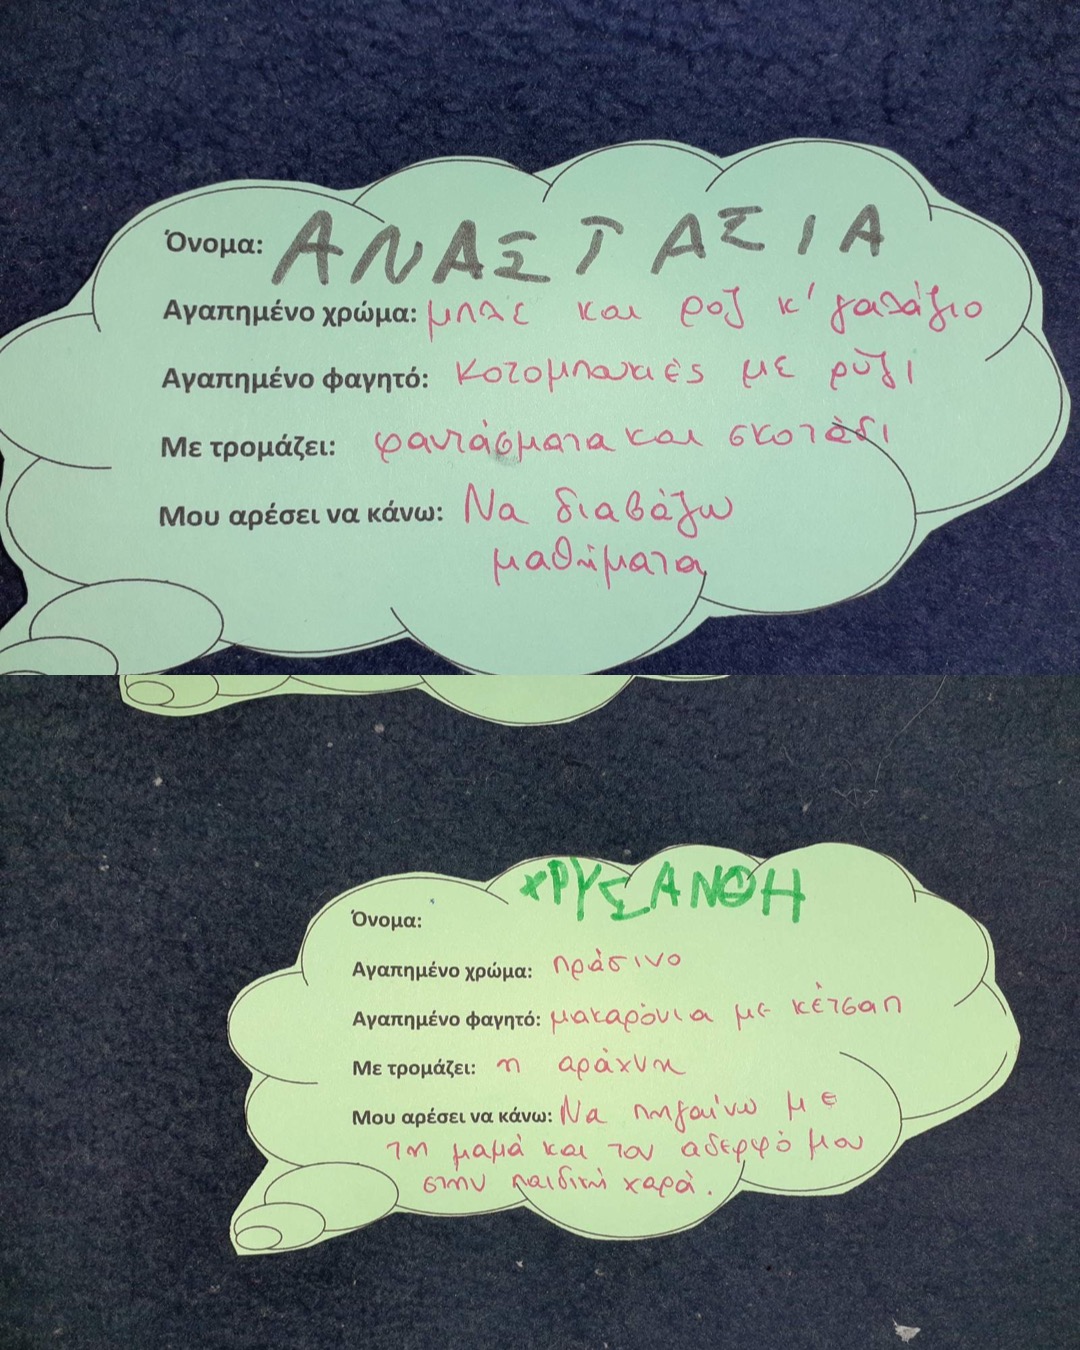 Όνομα: ΑΝΑΣΤΑΣΙΑ
Αγαπημένο χρώμα: μπλε και ροζ κ' γαλάζιο
Αγαπημένο φαγητό: Κοτομπουκιές με ρύζι
Με τρομάζει: φαντάσματα και σκοτάδι
Μου αρέσει να κάνω: Να διαβάζω
μαθήματα
ΧΡΥΣΑΝΘΗ
Όνομα:
Αγαπημένο χρώμα: πράσινο
Αγαπημένο φαγητό: μακαρόνια με κέτσαπ
Με τρομάζει: η αράχνη
Μου αρέσει να κάνω: Να πηγαίνω με
τη μαμά και τον αδερφό μου
στην παιδική χαρά.